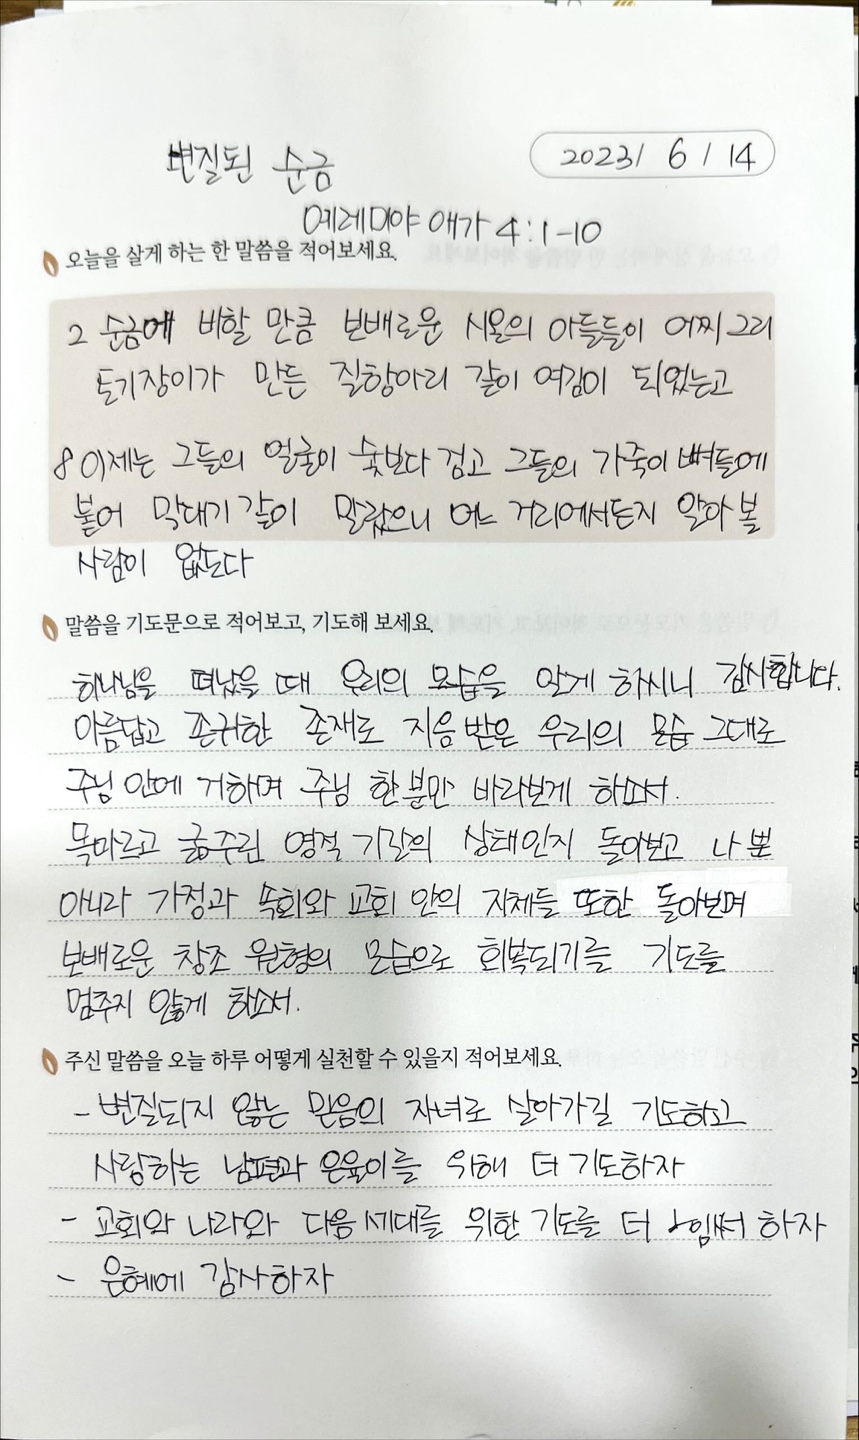 변질된 순금
2023/ 6 / 14
예레미야 애가 4:1-10
오늘을 살게 하는 한 말씀을 적어보세요.
2 순금에 비할 만큼 보배로운 시온의 아들들이 어찌 그리
토기장이가 만든 질항아리 같이 여김이 되었는고
8 이제는 그들의 얼굴이 숯보다 검고 그들의 가죽이 뼈들에
붙어 막대기 같이 말랐으니 어느 거리에서든지 알아 볼
사람이 없도다
말씀을 기도문으로 적어보고, 기도해 보세요.
하나님을 떠났을 때 우리의 모습을 알게 하시니 감사합니다.
아름답고 존귀한 존재로 지음 받은 우리의 모습 그대로
주님 안에 거하며 주님 한 분만 바라보게 하소서.
목마르고 굶주린 영적 기갈의 상태인지 돌아보고 나 뿐
아니라 가정과 속회와 교회 안의 지체들 또한 돌아보며
보배로운 창조 원형의 모습으로 회복되기를 기도를
멈추지 않게 하소서.
주신 말씀을 오늘 하루 어떻게 실천할 수 있을지 적어보세요.
- 변질되지 않는 믿음의 자녀로 살아가길 기도하고
사랑하는 남편과 은율이를 위해 더 기도하자
- 교회와 나라와 다음 세대를 위한 기도를 더 힘써 하자
- 은혜에 감사하자